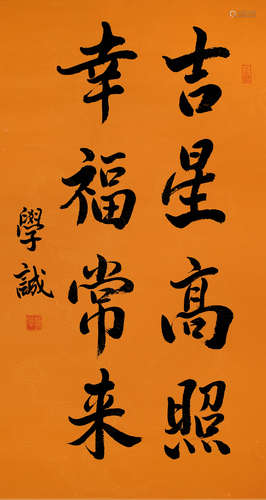 吉星高照
幸福常来
學誠